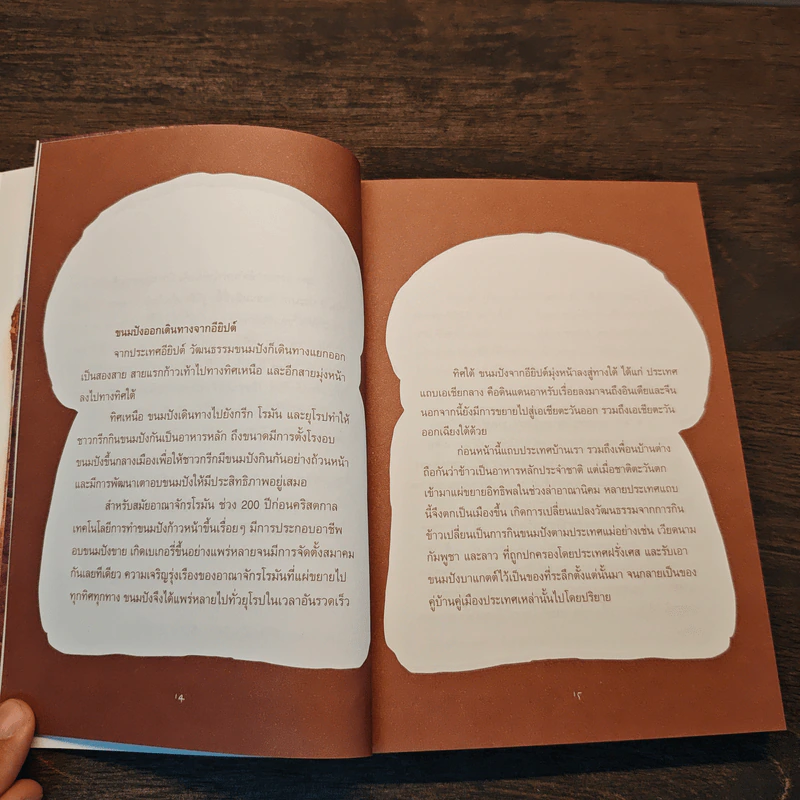 ขนมปังออกเดินทางจากอียิปต์
จากประเทศอียิปต์ วัฒนธรรมขนมปังก็เดินทางแยกออก
เป็นสองสาย สายแรกก้าวเท้าไปทางทิศเหนือ และอีกสายมุ่งหน้า
ลงไปทางทิศใต้
ทิศเหนือ ขนมปังเดินทางไปยังกรีก โรมัน และยุโรปทำให้
ชาวกรีกกินขนมปังกันเป็นอาหารหลัก ถึงขนาดมีการตั้งโรงอบ
ขนมปังขึ้นกลางเมืองเพื่อให้ชาวกรีกมีขนมปังกินกันอย่างถ้วนหน้า
และมีการพัฒนาเตาอบขนมปังให้มีประสิทธิภาพอยู่เสมอ
สำหรับสมัยอาณาจักรโรมัน ช่วง 200 ปีก่อนคริสตกาล
เทคโนโลยีการทำขนมปังก้าวหน้าขึ้นเรื่อยๆ มีการประกอบอาชีพ
อบขนมปังขาย เกิดเบเกอรี่ขึ้นอย่างแพร่หลายจนมีการจัดตั้งสมาคม
กันเลยทีเดียว ความเจริญรุ่งเรืองของอาณาจักรโรมันที่แผ่ขยายไป
ทุกทิศทุกทาง ขนมปังจึงได้แพร่หลายไปทั่วยุโรปในเวลาอันรวดเร็ว
ทิศใต้ ขนมปังจากอียิปต์มุ่งหน้าลงสู่ทางใต้ ได้แก่ ประเทศ
แถบเอเชียกลาง คือดินแดนอาหรับเรื่อยลงมาจนถึงอินเดียและจีน
นอกจากนี้ยังมีการขยายไปสู่เอเชียตะวันออก รวมถึงเอเชียตะวัน
ออกเฉียงใต้ด้วย
ก่อนหน้านี้แถบประเทศบ้านเรา รวมถึงเพื่อนบ้านต่าง
ถือกันว่าข้าวเป็นอาหารหลักประจำชาติ แต่เมื่อชาติตะวันตก
เข้ามาแผ่ขยายอิทธิพลในช่วงล่าอาณานิคม หลายประเทศแถบ
นี้จึงตกเป็นเมืองขึ้น เกิดการเปลี่ยนแปลงวัฒนธรรมจากการกิน
ข้าวเปลี่ยนเป็นการกินขนมปังตามประเทศแม่อย่างเช่น เวียดนาม
กัมพูชา และลาว ที่ถูกปกครองโดยประเทศฝรั่งเศส และรับเอา
ขนมปังบาแกตต์ไว้เป็นของที่ระลึกตั้งแต่นั้นมา จนกลายเป็นของ
คู่บ้านคู่เมืองประเทศเหล่านั้นไปโดยปริยาย